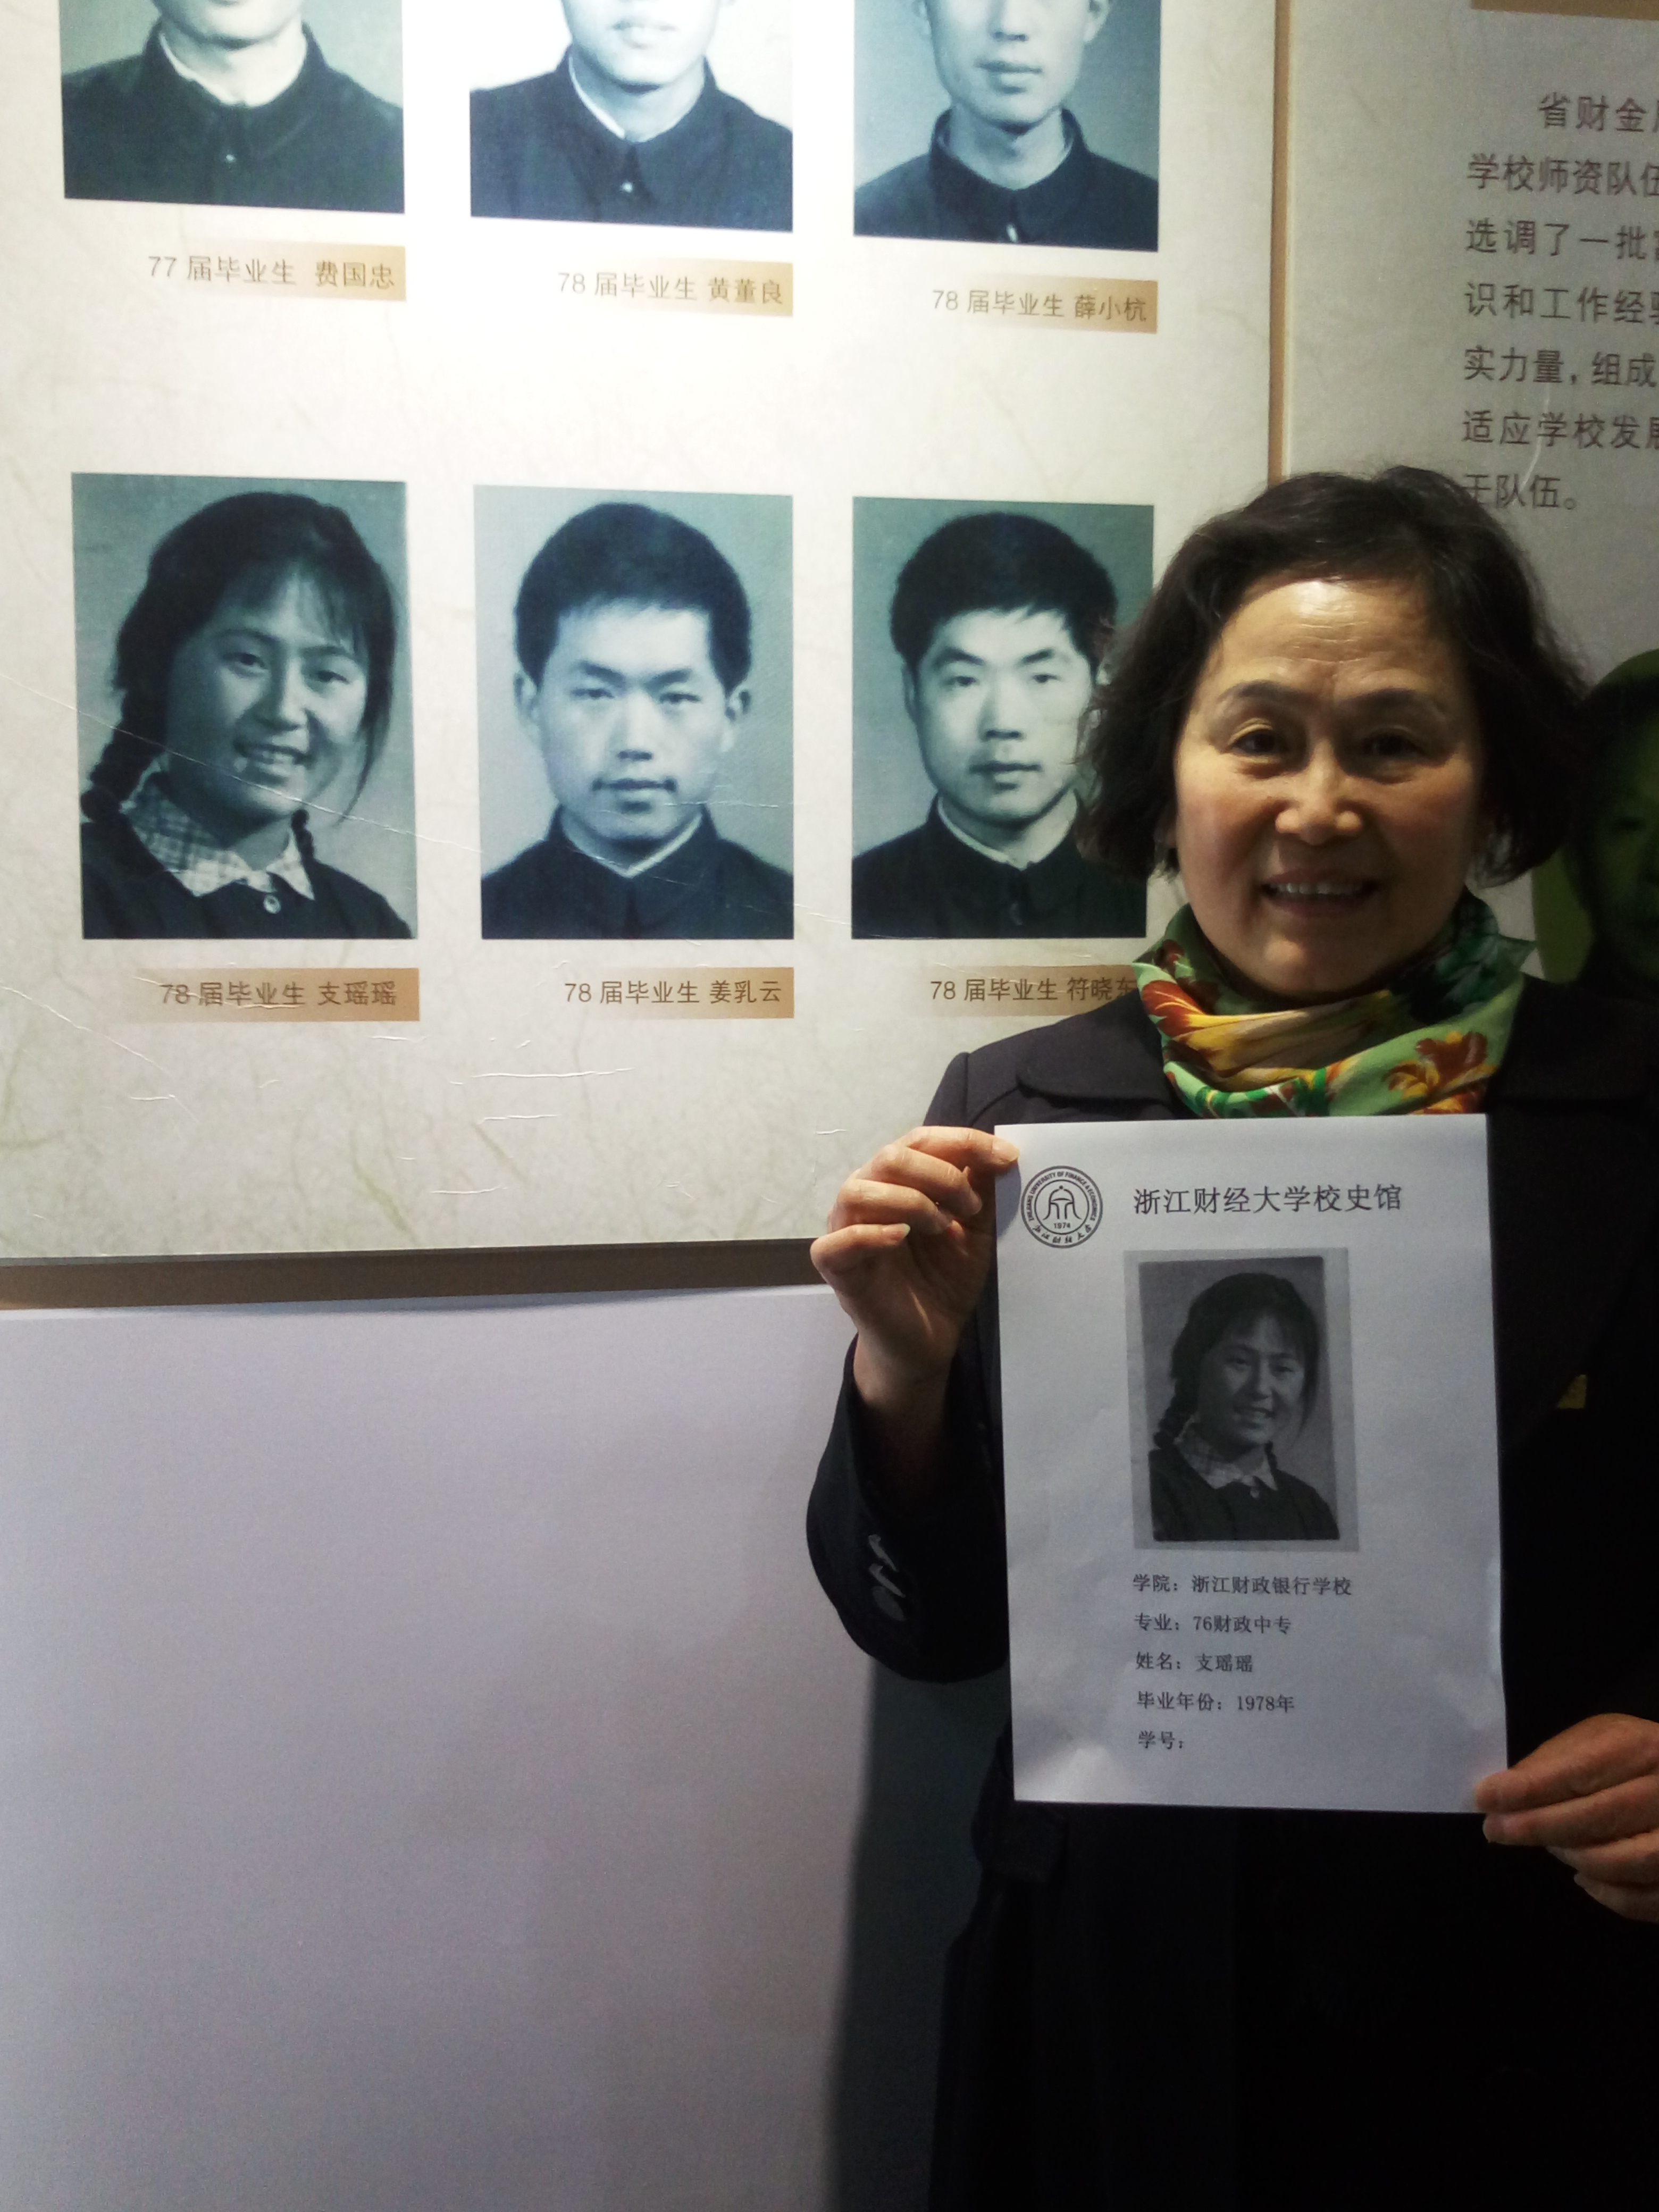 77 届毕业生 费国忠
78 届毕业生 黄董良
78 届毕业生 薛小杭
省财金
学校师资队伍
选调了一批
识和工作经验
实力量，组成
适应学校发展
干队伍。
78 届毕业生 支瑶瑶
78 届毕业生 姜乳云
78 届毕业生 符晓东
ZHEJIANG UNIVERSITY OF FINANCE & ECONOMICS
1974
浙江财经大学校史馆
学院：浙江财政银行学校
专业：76财政中专
姓名：支瑶瑶
毕业年份：1978年
学号：